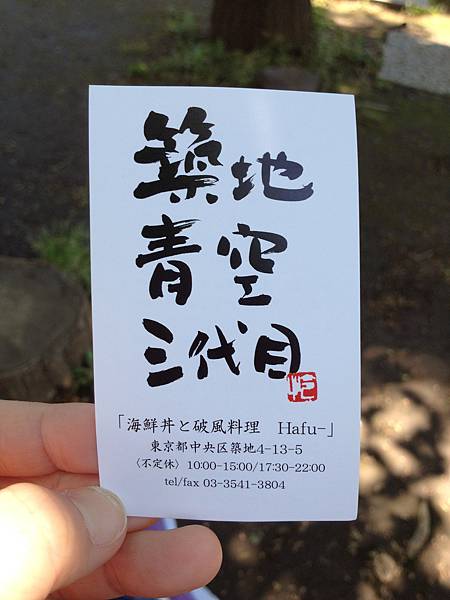 築地
青空
三代目
「海鮮丼と破風料理　Hafu-」
東京都中央区築地4-13-5
〈不定休〉10:00-15:00/17:30-22:00
tel/fax 03-3541-3804